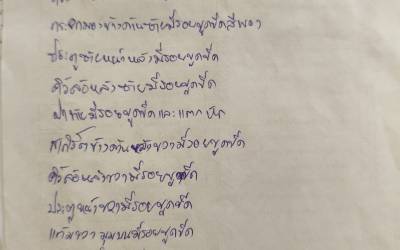 กระจกมองข้างด้านซ้ายมีรอยขูดขีดสีพอง
ประตูซ้ายหน้าหลังมีรอยขูดขีด
คิ้วล้อหลังซ้ายมีรอยขูดขีด
ฝาท้ายมีรอยขูดขีดและแตกบิ่น
สเกิร์ตข้างด้านหลังขวามีรอยขูดขีด
คิ้วล้อหลังขวามีรอยขูดขีด
ประตูหน้าขวามีรอยขูดขีด
แก้มขวามุมบนมีรอยขูดขีด